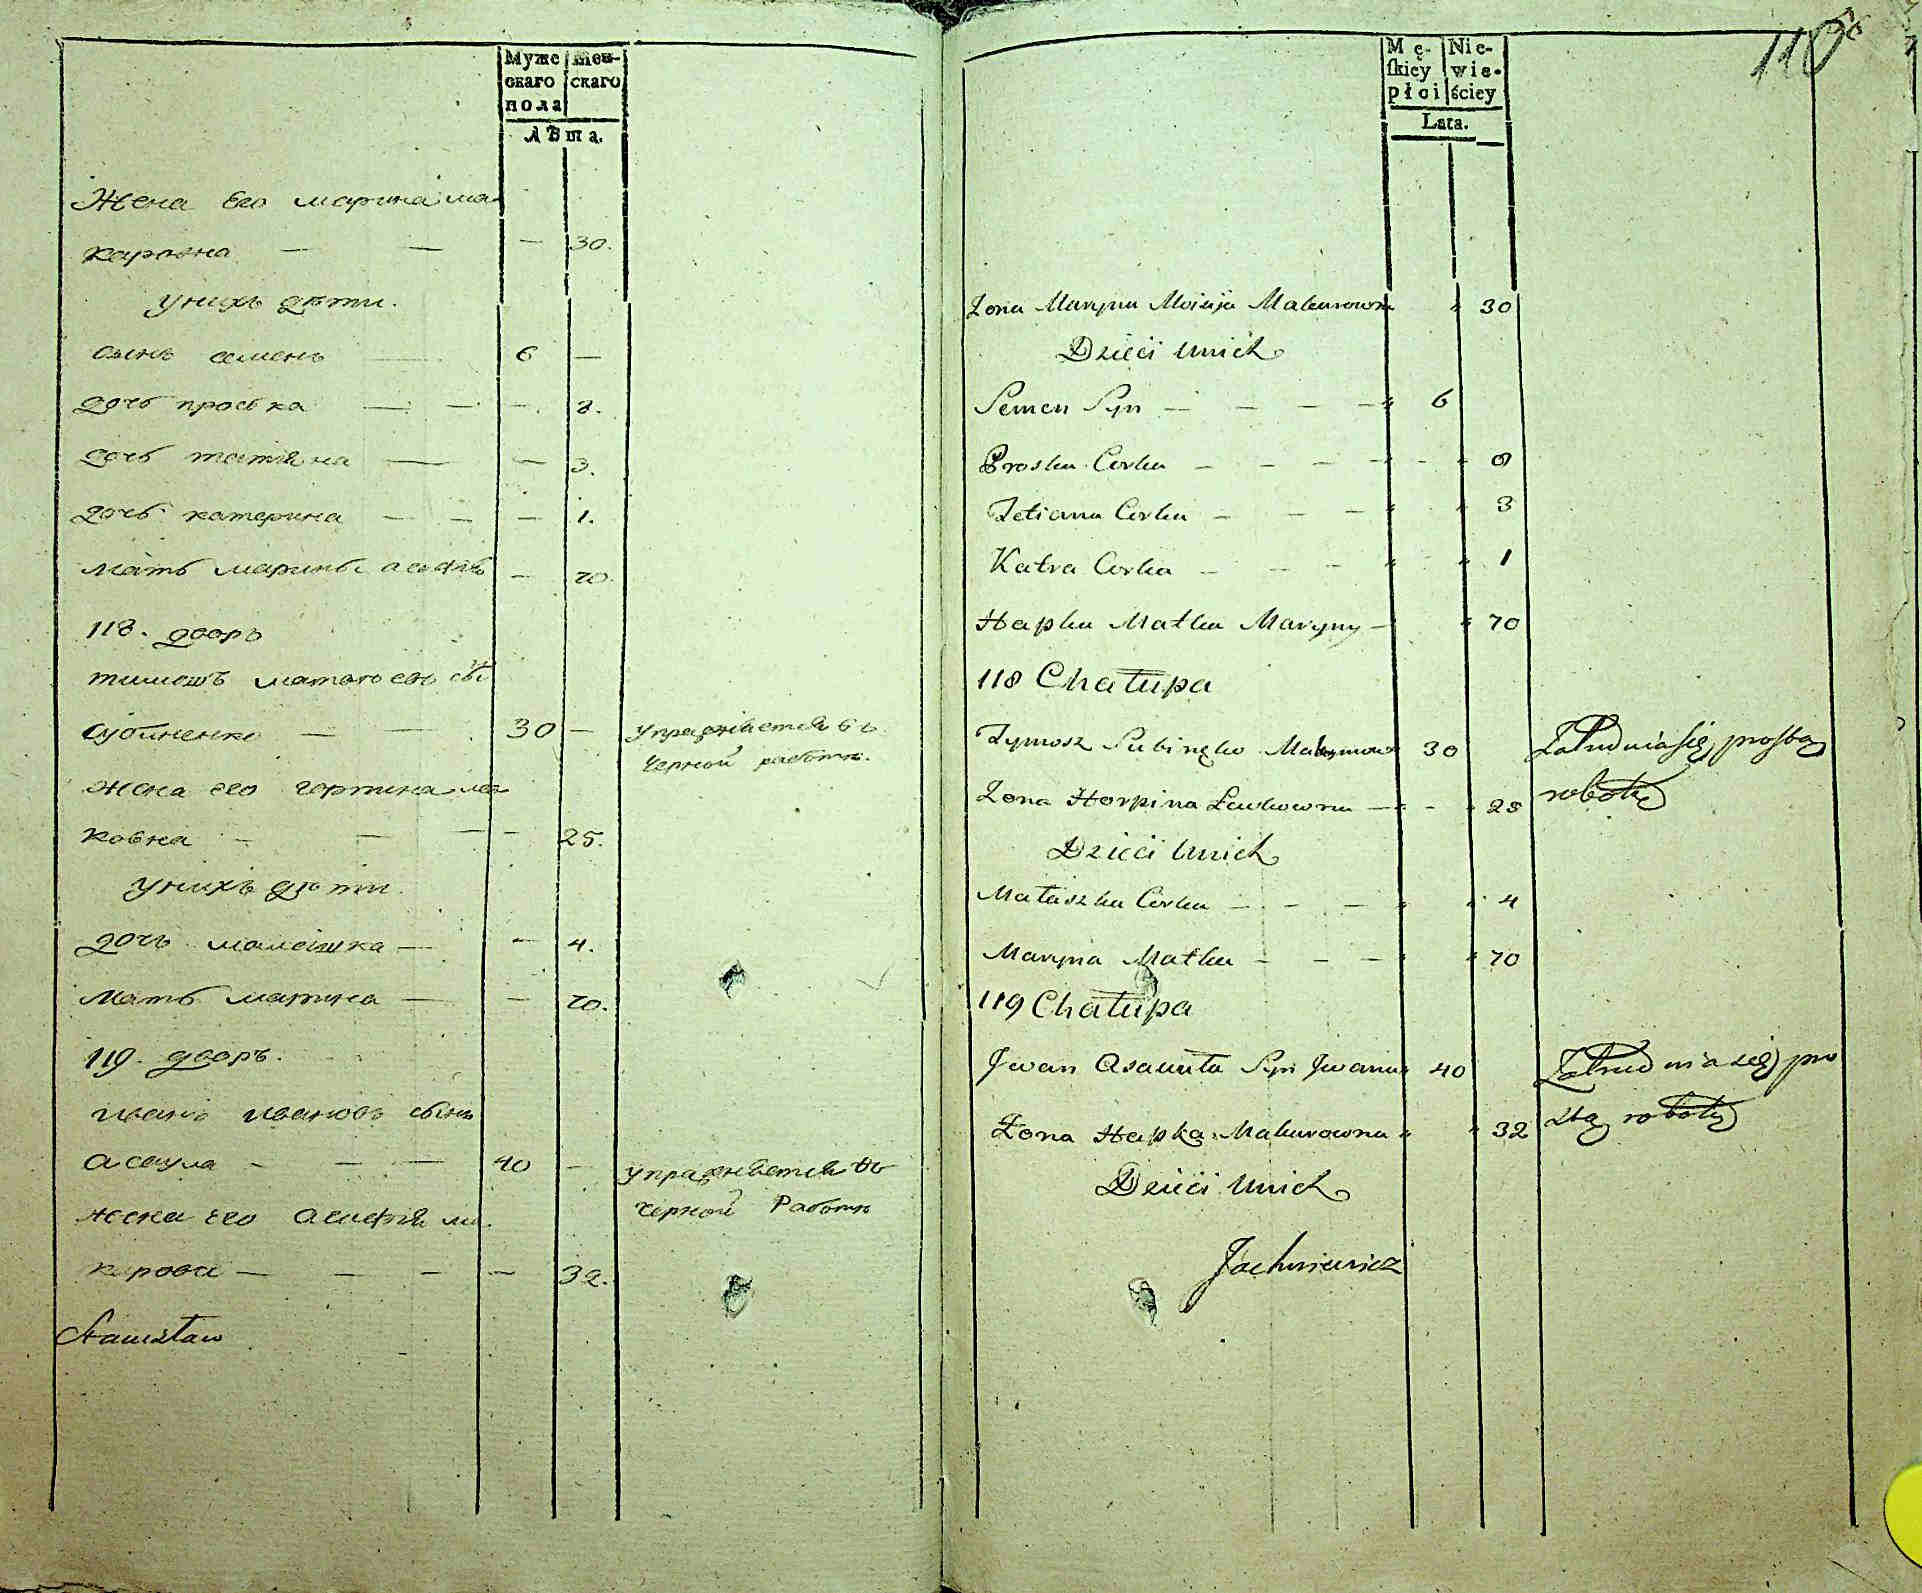 Муже Жен-
скаго скаго
пола
лѣта.
Жена Его марина ма
каровна — — — 30.
унихъ дѣти.
сынъ семенъ — 6 —
дочь проська — — — 8.
дочь татіяна — — 3.
дочь катерина — — — 1.
мать марины агафія — 70.
118. дворъ
тимошъ матвѣевъ сы
Субиненко — — 30 — упражняется въ
черной работѣ.
жена его горпина лев
ковна — — — — 25.
унихъ дѣти.
дочь малашка — — 4.
мать марина — — 70.
119. дворъ.
иванъ ивановъ сынъ
асаула — — — 40 — упражняется въ
черной Работѣ
жена Его Агафія ма
карова — — — — 32.
Stanisław
110
Mę- Nie-
skiey wie-
płci ściey
Lata.
Żona Maryna Makarowna 30
Dzieci unich
Semen Syn — — — — 6
Proska Corka — — — — 8
Tetiana Corka — — — 3
Katra Corka — — — 1
Hapka Matka Maryny — 70
118 Chałupa
Tymosz Subinęko 30 Zatrudnia się prostą
robotą
Żona Horpina Lewkowna — — 25
Dzieci Unich
Małaszka Corka — — — 4
Maryna Matka — — — 70
119 Chałupa
Jwan Asauła Syn Jwana 40 Zatrudnia się pro
stą robotą
Żona Hapka Makarowna 32
Dzieci Unich
Jachniewicz